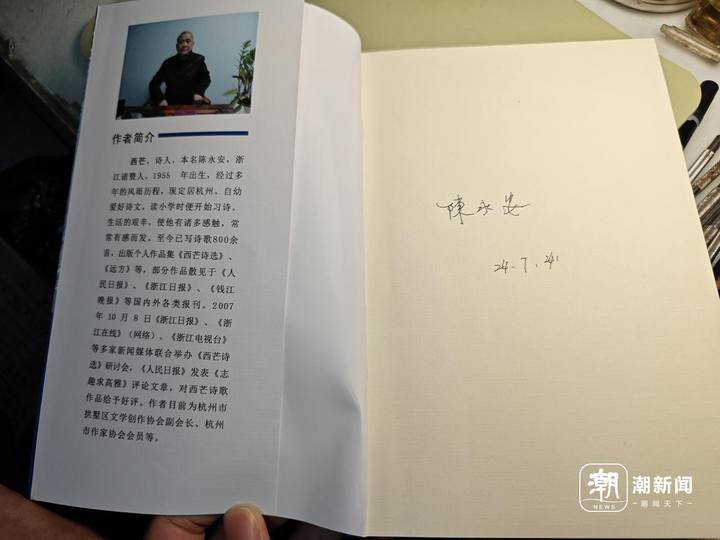 作者简介
西芒，诗人，本名陈永安，浙
江诸暨人，1955 年出生，经过多
年的风雨历程，现定居杭州。自幼
爱好诗文，读小学时便开始习诗。
生活的艰辛，使他有诸多感触，常
常有感而发，至今已写诗歌800余
首，出版个人作品集《西芒诗选》、
《远方》等，部分作品散见于《人
民日报》、《浙江日报》、《钱江
晚报》等国内外各类报刊。2007
年 10 月 8 日《浙江日报》、《浙
江在线》（网络）、《浙江电视台》
等多家新闻媒体联合举办《西芒诗
选》研讨会，《人民日报》发表《志
趣求高雅》评论文章，对西芒诗歌
作品给予好评。作者目前为杭州市
拱墅区文学创作协会副会长、杭州
市作家协会会员等。
陳永安
24.7.24
潮 潮新闻
NEWS 一潮闻天下